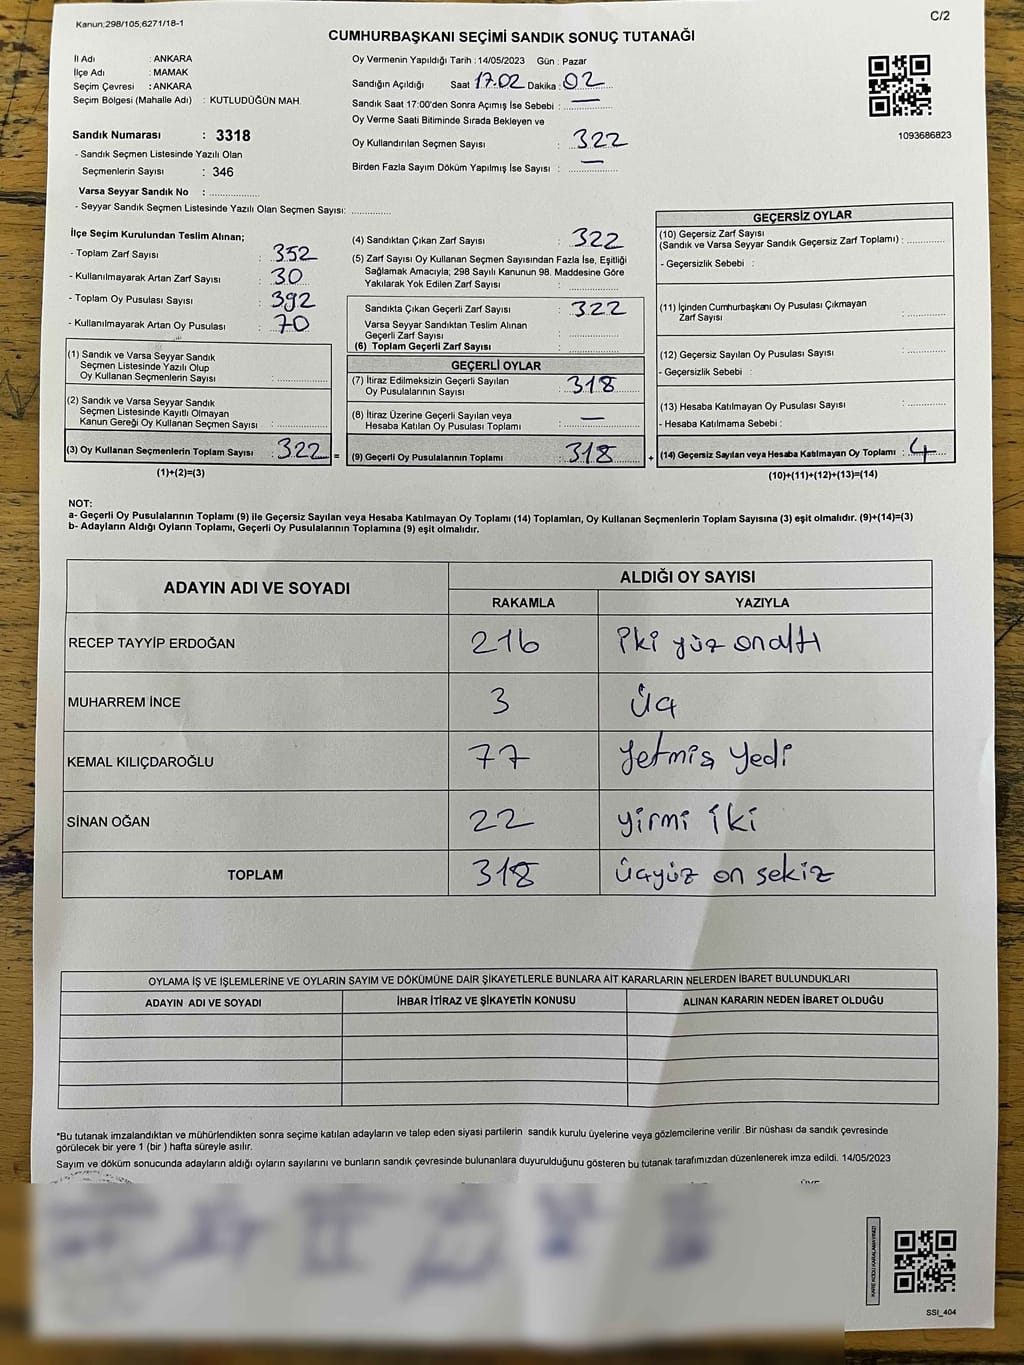 Kanun;298/105;6271/18-1
C/2
CUMHURBAŞKANI SEÇİMİ SANDIK SONUÇ TUTANAĞI
İl Adı : ANKARA
İlçe Adı : MAMAK
Seçim Çevresi : ANKARA
Seçim Bölgesi (Mahalle Adı) : KUTLUDÜĞÜN MAH.
Sandık Numarası : 3318
- Sandık Seçmen Listesinde Yazılı Olan
Seçmenlerin Sayısı : 346
Varsa Seyyar Sandık No : ....................
- Seyyar Sandık Seçmen Listesinde Yazılı Olan Seçmen Sayısı: ..............
Oy Vermenin Yapıldığı Tarih : 14/05/2023 Gün : Pazar
Sandığın Açıldığı Saat 17.02 Dakika : 02
Sandık Saat 17:00'den Sonra Açımış İse Sebebi : —
Oy Verme Saati Bitiminde Sırada Bekleyen ve
Oy Kullandırılan Seçmen Sayısı : 322
Birden Fazla Sayım Döküm Yapılmış İse Sayısı : —
1093686823
İlçe Seçim Kurulundan Teslim Alınan;
- Toplam Zarf Sayısı : 352
- Kullanılmayarak Artan Zarf Sayısı : 30
- Toplam Oy Pusulası Sayısı : 392
- Kullanılmayarak Artan Oy Pusulası : 70
(1) Sandık ve Varsa Seyyar Sandık
Seçmen Listesinde Yazılı Olup
Oy Kullanan Seçmenlerin Sayısı : ..................
(2) Sandık ve Varsa Seyyar Sandık
Seçmen Listesinde Kayıtlı Olmayan
Kanun Gereği Oy Kullanan Seçmen Sayısı : ..................
(3) Oy Kullanan Seçmenlerin Toplam Sayısı : 322 =
(1)+(2)=(3)
(4) Sandıktan Çıkan Zarf Sayısı : 322
(5) Zarf Sayısı Oy Kullanan Seçmen Sayısından Fazla İse, Eşitliği
Sağlamak Amacıyla; 298 Sayılı Kanunun 98. Maddesine Göre
Yakılarak Yok Edilen Zarf Sayısı : ..................
Sandıkta Çıkan Geçerli Zarf Sayısı : 322
Varsa Seyyar Sandıktan Teslim Alınan
Geçerli Zarf Sayısı : ..................
(6) Toplam Geçerli Zarf Sayısı : ..................
GEÇERLİ OYLAR
(7) İtiraz Edilmeksizin Geçerli Sayılan
Oy Pusulalarının Sayısı : 318
(8) İtiraz Üzerine Geçerli Sayılan veya
Hesaba Katılan Oy Pusulası Toplamı : —
(9) Geçerli Oy Pusulalarının Toplamı : 318 +
GEÇERSİZ OYLAR
(10) Geçersiz Zarf Sayısı
(Sandık ve Varsa Seyyar Sandık Geçersiz Zarf Toplamı) : ..............
- Geçersizlik Sebebi :
(11) İçinden Cumhurbaşkanı Oy Pusulası Çıkmayan
Zarf Sayısı : ..............
(12) Geçersiz Sayılan Oy Pusulası Sayısı : ..............
- Geçersizlik Sebebi :
(13) Hesaba Katılmayan Oy Pusulası Sayısı : ..............
- Hesaba Katılmama Sebebi :
(14) Geçersiz Sayılan veya Hesaba Katılmayan Oy Toplamı : 4
(10)+(11)+(12)+(13)=(14)
NOT:
a- Geçerli Oy Pusulalarının Toplamı (9) ile Geçersiz Sayılan veya Hesaba Katılmayan Oy Toplamı (14) Toplamları, Oy Kullanan Seçmenlerin Toplam Sayısına (3) eşit olmalıdır. (9)+(14)=(3)
b- Adayların Aldığı Oyların Toplamı, Geçerli Oy Pusulalarının Toplamına (9) eşit olmalıdır.
ADAYIN ADI VE SOYADI
ALDIĞI OY SAYISI
RAKAMLA YAZIYLA
RECEP TAYYİP ERDOĞAN 216 iki yüz onaltı
MUHARREM İNCE 3 üç
KEMAL KILIÇDAROĞLU 77 Yetmiş Yedi
SİNAN OĞAN 22 yirmi iki
TOPLAM 318 üçyüz on sekiz
OYLAMA İŞ VE İŞLEMLERİNE VE OYLARIN SAYIM VE DÖKÜMÜNE DAİR ŞİKAYETLERLE BUNLARA AİT KARARLARIN NELERDEN İBARET BULUNDUKLARI
ADAYIN ADI VE SOYADI İHBAR İTİRAZ VE ŞİKAYETİN KONUSU ALINAN KARARIN NEDEN İBARET OLDUĞU
*Bu tutanak imzalandıktan ve mühürlendikten sonra seçime katılan adayların ve talep eden siyasi partilerin sandık kurulu üyelerine veya gözlemcilerine verilir .Bir nüshası da sandık çevresinde
görülecek bir yere 1 (bir ) hafta süreyle asılır.
Sayım ve döküm sonucunda adayların aldığı oyların sayılarını ve bunların sandık çevresinde bulunanlara duyurulduğunu gösteren bu tutanak tarafımızdan düzenlenerek imza edildi. 14/05/2023
KARE KODU KARALAMAYINIZ!
SSI_404